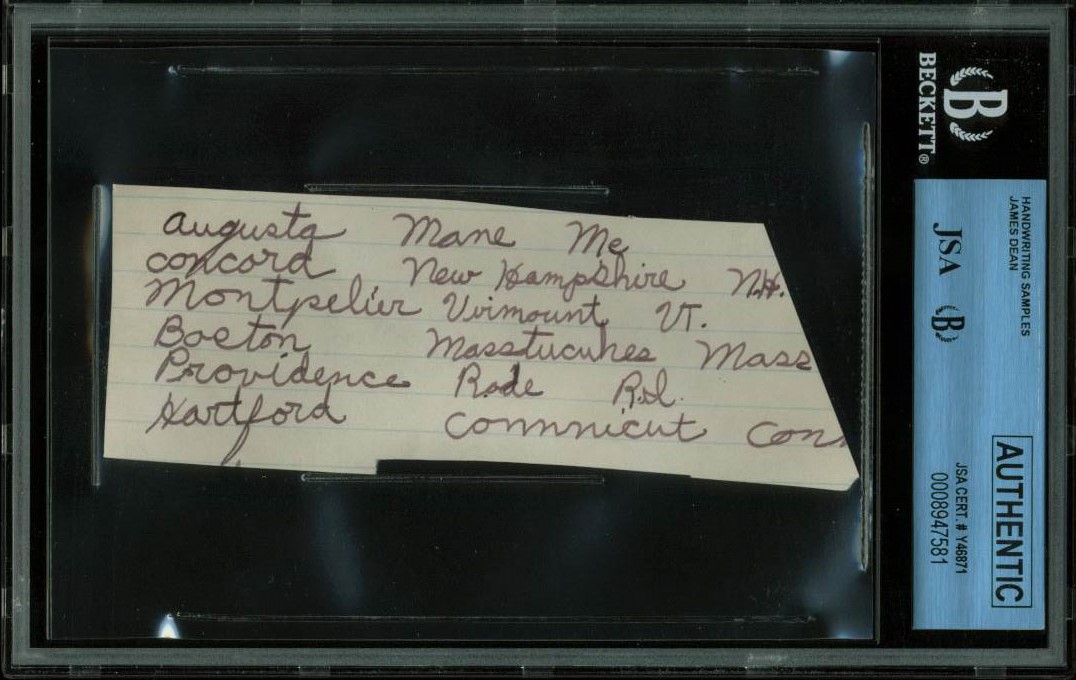 augusta Mane Me
concord New Hampshire N.H.
Montpelier Virmount VT.
Boston Masstucuhes Mass
Providence Rode R.I.
Hartford Connnicut Con.
B
BECKETT®
HANDWRITING SAMPLES
JAMES DEAN
JSA B
AUTHENTIC
JSA CERT. # Y46871
0008947581